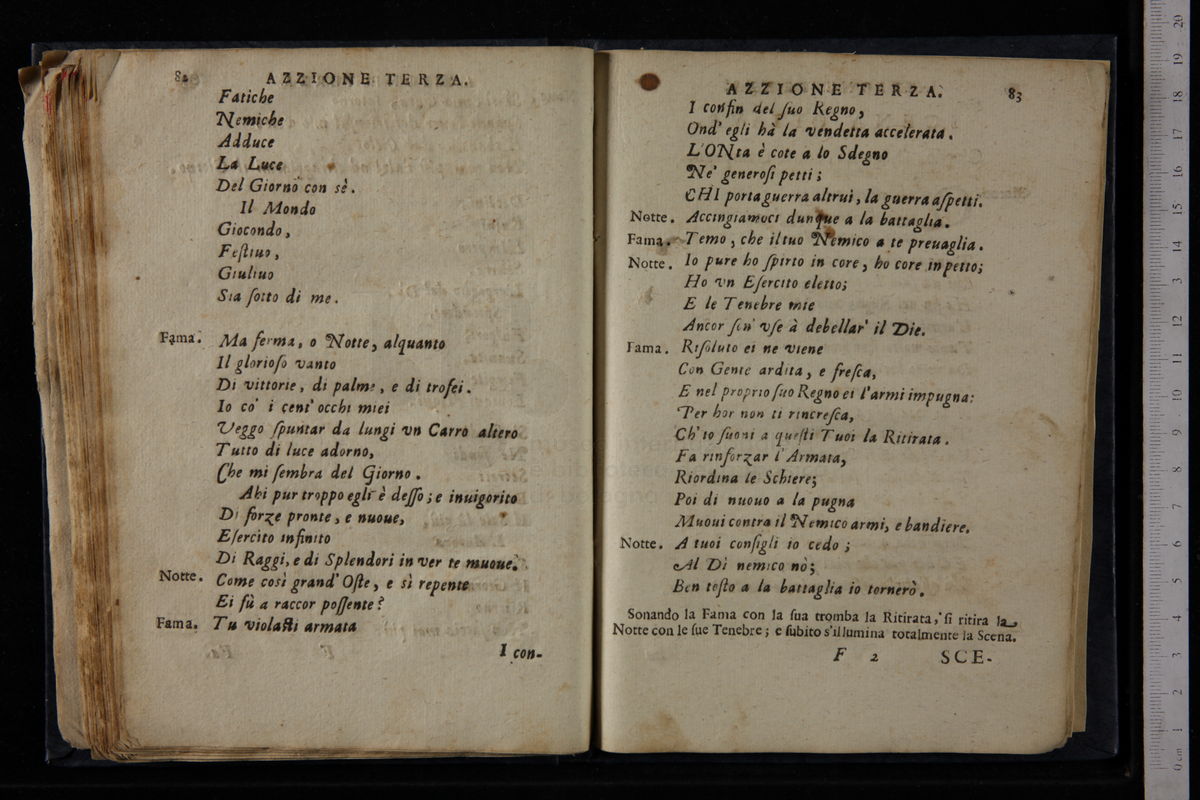 82 AZZIONE TERZA.
Fatiche
Nemiche
Adduce
La Luce
Del Giorno con sè.
Il Mondo
Giocondo,
Feſtiuo,
Giuliuo
Sia ſotto di me.
Fama. Ma ferma, o Notte, alquanto
Il glorioſo vanto
Di vittorie, di palme, e di trofei.
Io co' i cent' occhi miei
Veggo ſpuntar da lungi vn Carro altero
Tutto di luce adorno,
Che mi ſembra del Giorno.
Ahi pur troppo egli è deſſo; e inuigorito
Di forze pronte, e nuoue,
Eſercito infinito
Di Raggi, e di Splendori in ver te muoue.
Notte. Come così grand' Oſte, e sì repente
Ei fù a raccor poſſente?
Fama. Tu violaſti armata
I con-
AZZIONE TERZA. 83
I confin del ſuo Regno,
Ond' egli hà la vendetta accelerata.
L'ONta è cote a lo Sdegno
Ne' generoſi petti;
CHI porta guerra altrui, la guerra aſpetti.
Notte. Accingiamoci dunque a la battaglia.
Fama. Temo, che il tuo Nemico a te preuaglia.
Notte. Io pure ho ſpirto in core, ho core in petto;
Ho vn Eſercito eletto;
E le Tenebre mie
Ancor ſon' vſe à debellar' il Die.
Fama. Riſoluto ei ne viene
Con Gente ardita, e freſca,
E nel proprio ſuo Regno ei l'armi impugna:
Per hor non ti rincreſca,
Ch' io ſuoni a queſti Tuoi la Ritirata.
Fa rinforzar l'Armata,
Riordina le Schiere;
Poi di nuouo a la pugna
Muoui contra il Nemico armi, e bandiere.
Notte. A tuoi conſigli io cedo;
Al Dì nemico nò;
Ben toſto a la battaglia io tornerò.
Sonando la Fama con la ſua tromba la Ritirata, ſi ritira la
Notte con le ſue Tenebre; e ſubito s'illumina totalmente la Scena.
F 2 SCE-